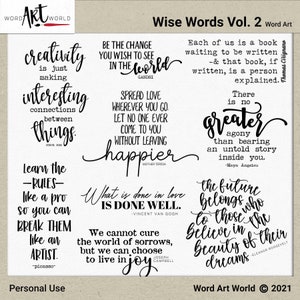 WORD ART WORLD
Wise Words Vol. 2 Word Art
creativity
is just
making
interesting
connections
between
things.
BE THE CHANGE
YOU WISH TO SEE
IN THE world
GANDHI
Each of us is a book
waiting to be written
-& that book, if
written, is a person
explained.
Thomas Cleynans
SPREAD LOVE
WHEREVER YOU GO.
LET NO ONE EVER
COME TO YOU
WITHOUT LEAVING
happier
MOTHER TERESA
There
is no
greater
agony
than bearing
an untold story
inside you.
-Maya Angelou
learn the
-RULES-
like a pro
so you can
BREAK THEM
like an
ARTIST.
-picasso-
What is done in love
IS DONE WELL.
-VINCENT VAN GOGH
We cannot cure
the world of sorrows,
but we can choose
to live in joy
JOSEPH
CAMPBELL
the future
belongs
to those who
Believe in the
Beauty of their
dreams
ELEANOR ROOSEVELT
Personal Use
Word Art World © 2021